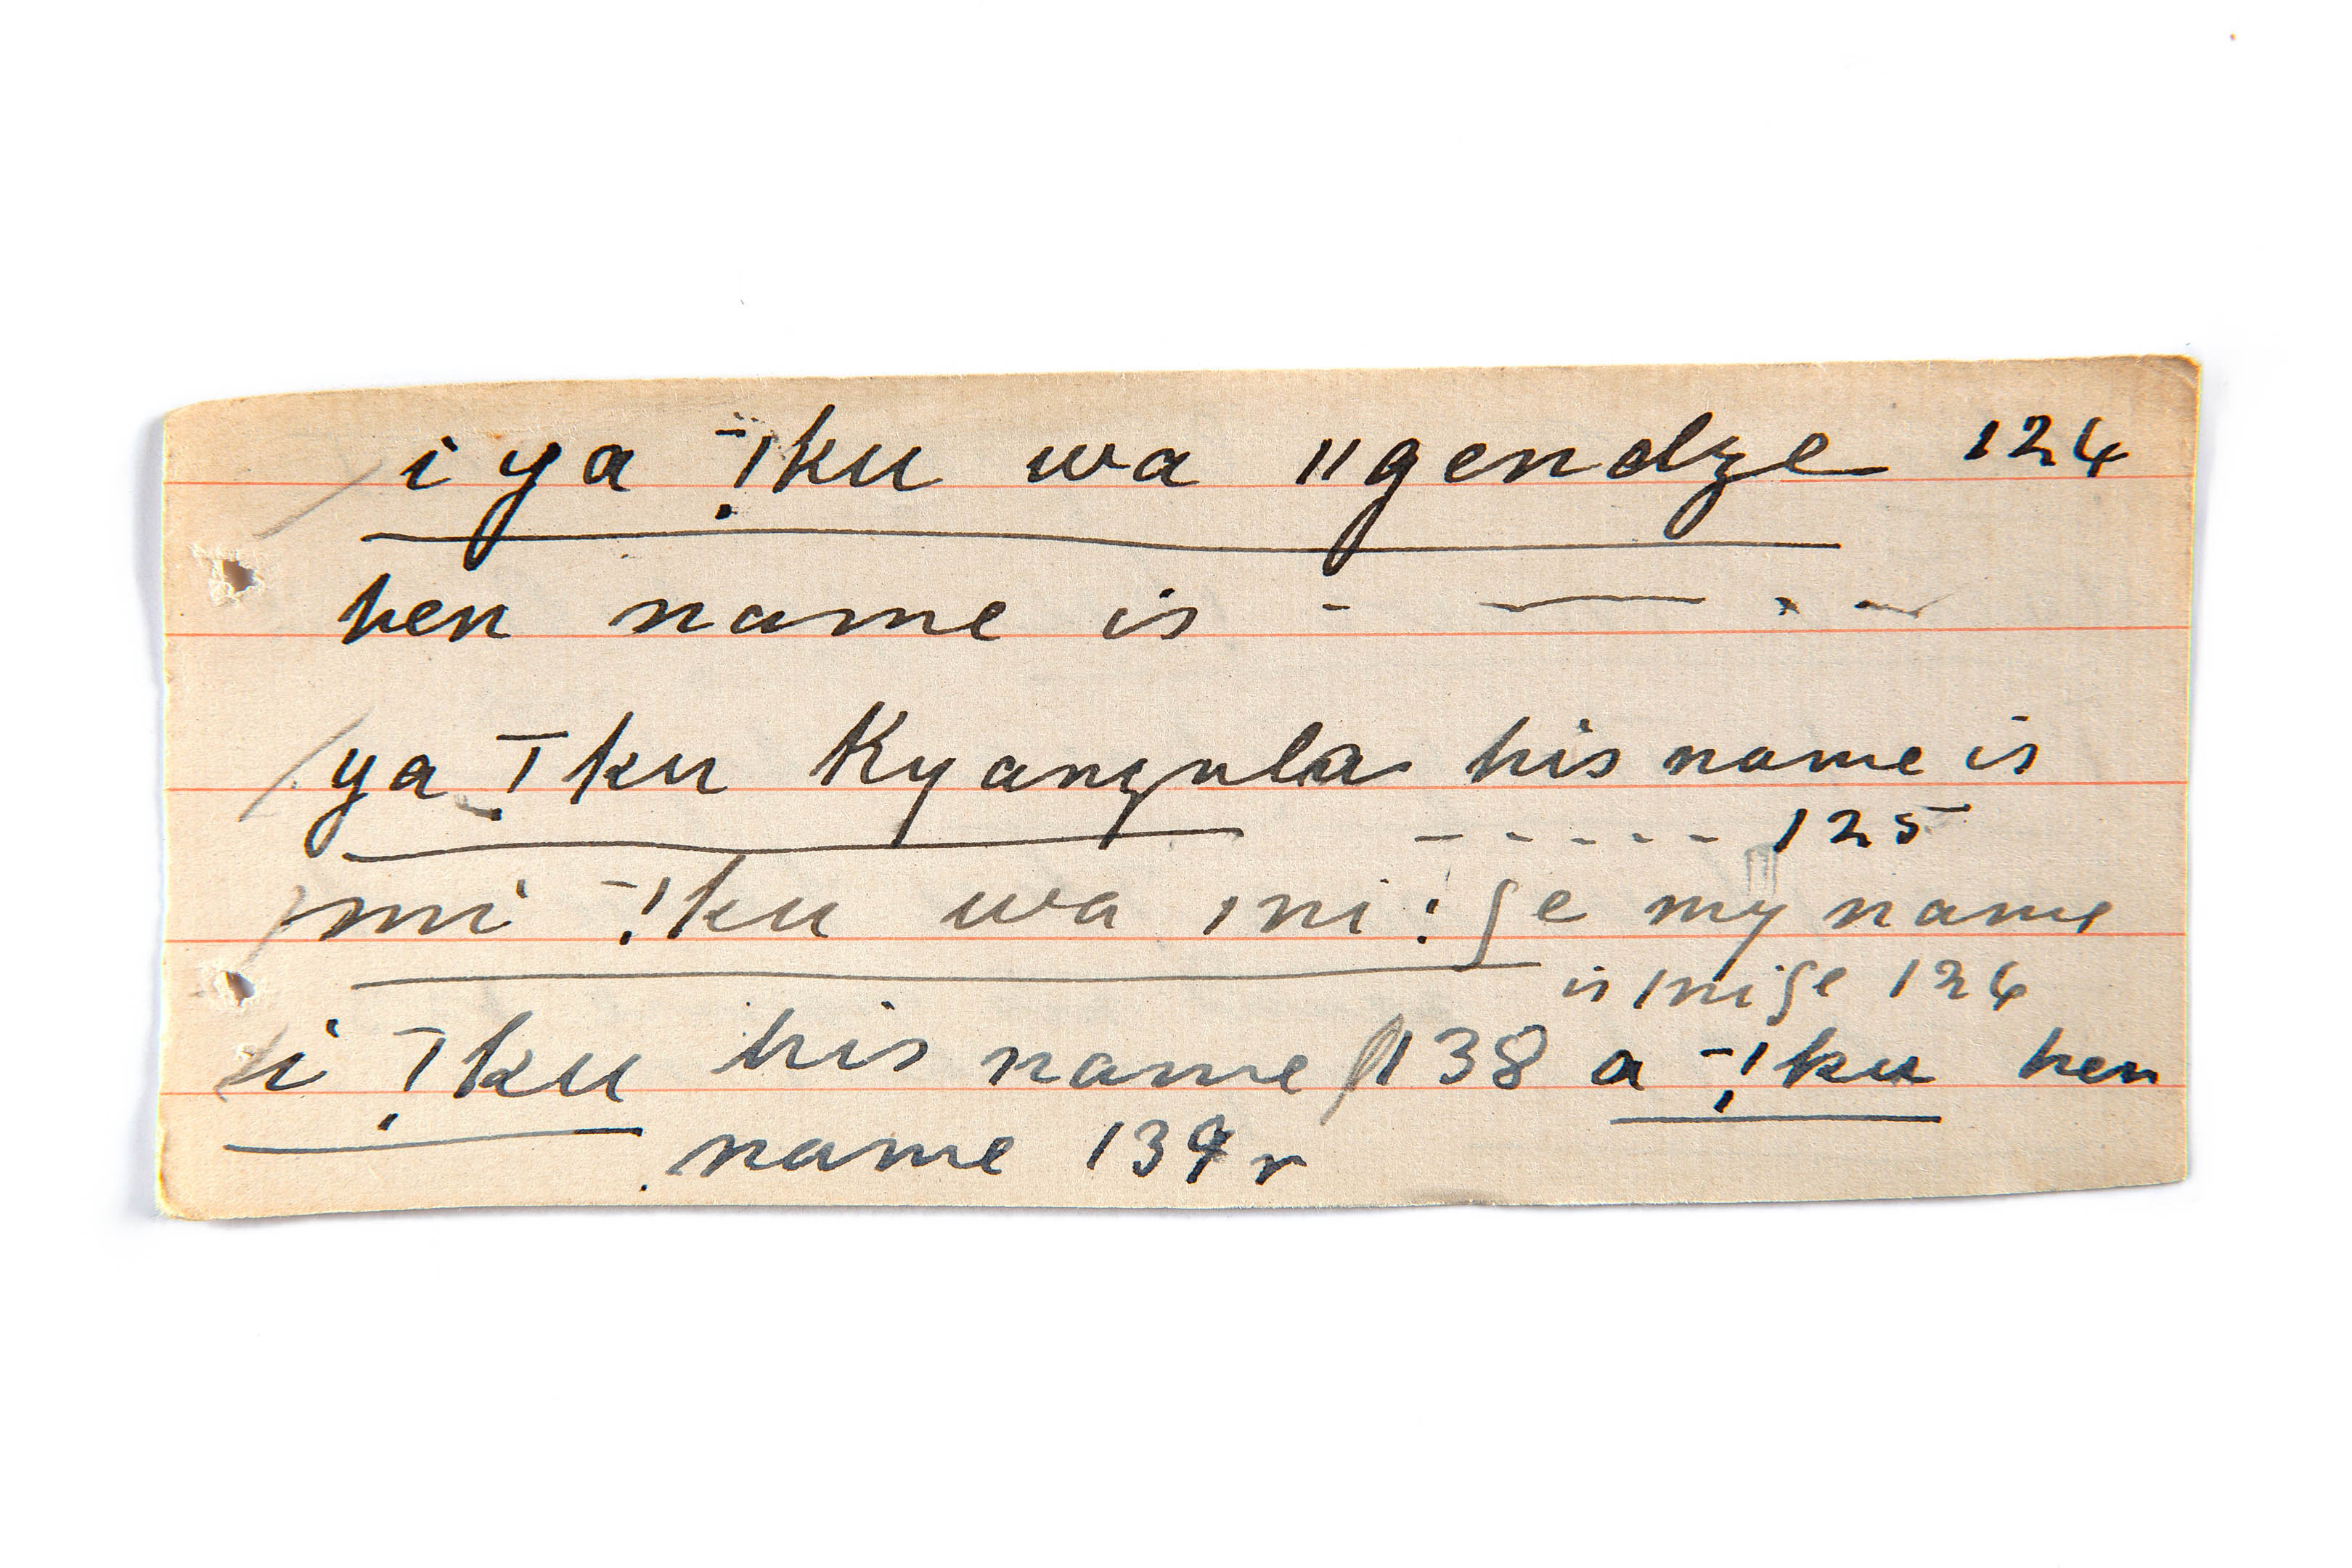 i ya ˉ!ku wa ǁgendze 124
her name is - — . -
ya ˉ!ku Kyangula his name is
- - - - - 125
mi ˉ!ku wa ıni:ʃe my name
is |niʃe 126
i ˉ!ku his name 138 a ˉ!ku her
name 139 r